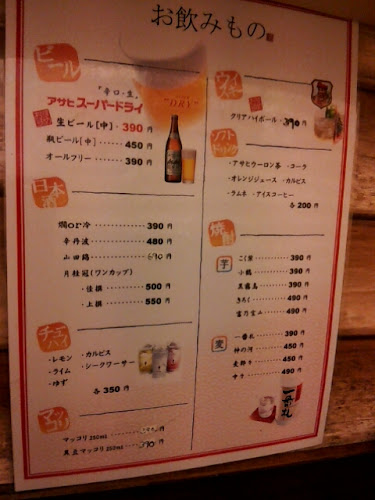 お飲みもの
ビール
『辛口・生』
アサヒスーパードライ
生ビール[中]・390円
瓶ビール[中]・・・・・450円
オールフリー・・・・・390円
日本酒
燗or冷・・・・・・・・390円
辛丹波・・・・・・・・480円
山田錦・・・・・・・・690円
月桂冠(ワンカップ)
・佳撰・・・・・・500円
・上撰・・・・・・550円
チューハイ
・レモン ・カルピス
・ライム ・シークワーサー
・ゆず
各350円
マッコリ
マッコリ250ml
黒豆マッコリ250ml
ウイスキー
クリアハイボール・・390円
ソフトドリンク
・アサヒウーロン茶 ・コーラ
・オレンジジュース ・カルピス
・ラムネ ・アイスコーヒー
各200円
焼酎
芋
390円
小鶴・・・・・・・・390円
黒霧島・・・・・・・390円
きろく・・・・・・・490円
富乃宝山・・・・・・490円
麦
一番札・・・・・・・390円
神の河・・・・・・・450円
麦颪り・・・・・・・450円
490円